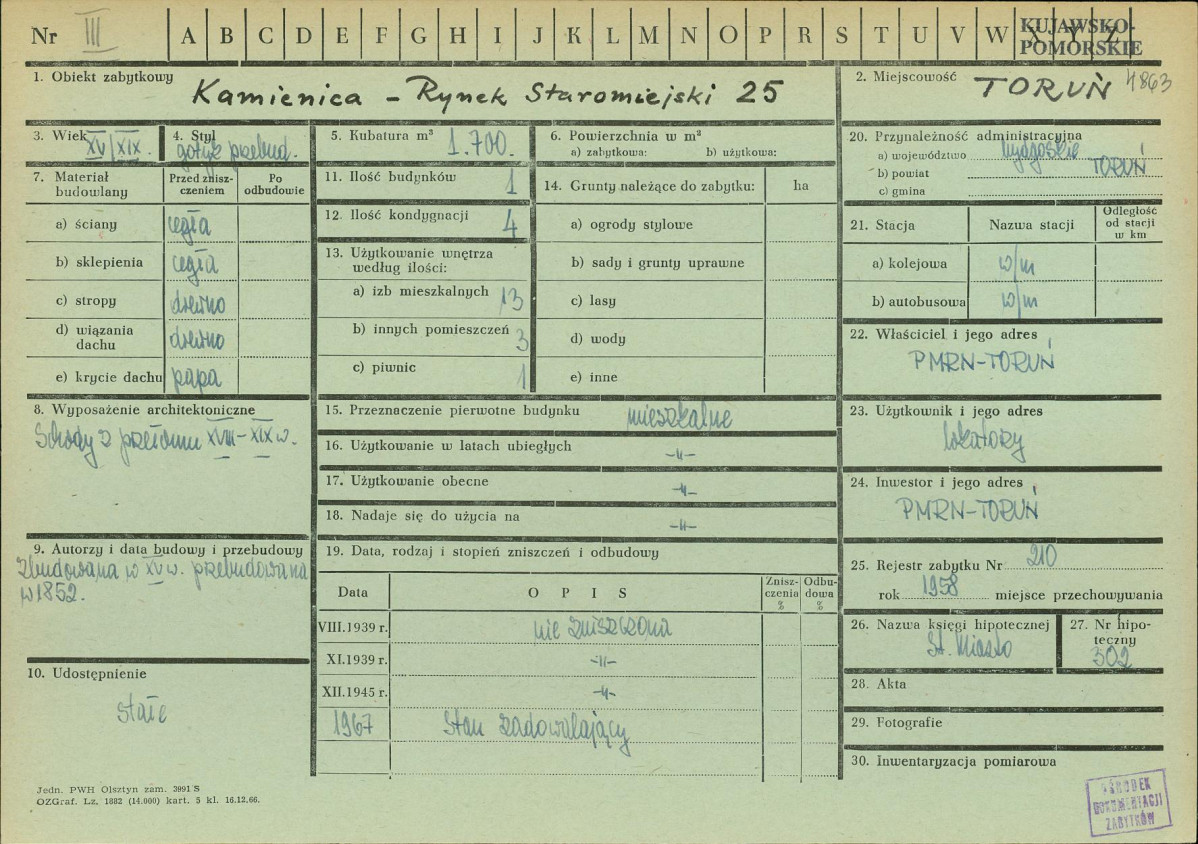 Nr III A B C D E F G H I J K L M N O P R S T U V W X Y Z
KUJAWSKO-
POMORSKIE
1. Obiekt zabytkowy
Kamienica – Rynek Staromiejski 25
2. Miejscowość
TORUŃ 4863
3. Wiek XV/XIX.
4. Styl
gotyk przebud.
5. Kubatura m³ 1.700.
6. Powierzchnia w m²
a) zabytkowa: b) użytkowa:
7. Materiał
budowlany
Przed znisz-
czeniem
Po
odbudowie
a) ściany cegła
b) sklepienia cegła
c) stropy drewno
d) wiązania
dachu drewno
e) krycie dachu papa
8. Wyposażenie architektoniczne
Schody z przełomu XVIII–XIX w.
9. Autorzy i data budowy i przebudowy
Zbudowana w XV w. przebudowana
w 1852.
10. Udostępnienie
stałe
11. Ilość budynków 1
12. Ilość kondygnacji 4
13. Użytkowanie wnętrza
według ilości:
a) izb mieszkalnych 13
b) innych pomieszczeń 3
c) piwnic 1
14. Grunty należące do zabytku: ha
a) ogrody stylowe
b) sady i grunty uprawne
c) lasy
d) wody
e) inne
15. Przeznaczenie pierwotne budynku mieszkalne
16. Użytkowanie w latach ubiegłych –„–
17. Użytkowanie obecne –„–
18. Nadaje się do użycia na –„–
19. Data, rodzaj i stopień zniszczeń i odbudowy
Data
O P I S
Znisz-
czenia
%
Odbu-
dowa
%
VIII.1939 r. nie zniszczona
XI.1939 r. –„–
XII.1945 r. –„–
1967 Stan zadowalający
20. Przynależność administracyjna
a) województwo bydgoskie
b) powiat TORUŃ
c) gmina
21. Stacja
Nazwa stacji
Odległość
od stacji
w km
a) kolejowa w/m
b) autobusowa w/m
22. Właściciel i jego adres
PMRN-TORUŃ
23. Użytkownik i jego adres
lokatorzy
24. Inwestor i jego adres
PMRN-TORUŃ
25. Rejestr zabytku Nr 210
rok 1958 miejsce przechowywania
26. Nazwa księgi hipotecznej
St. Miasto
27. Nr hipo-
teczny
302
28. Akta
29. Fotografie
30. Inwentaryzacja pomiarowa
Jedn. PWH Olsztyn zam. 3991 S
OZGraf. Lz. 1882 (14.000) kart. 5 kl. 16.12.66.
OŚRODEK
DOKUMENTACJI
ZABYTKÓW